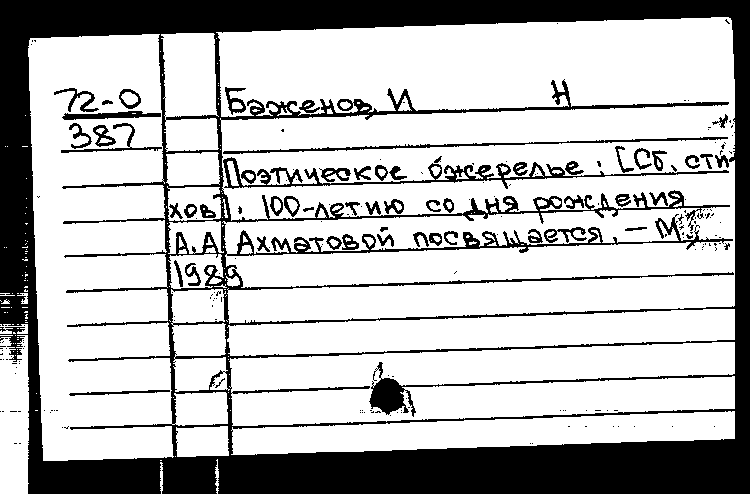 72-0 Баженов, И Н
387
Поэтическое ожерелье : [Сб. сти-
хов] : 100-летию со дня рождения
А.А. Ахматовой посвящается. – М.,
1989